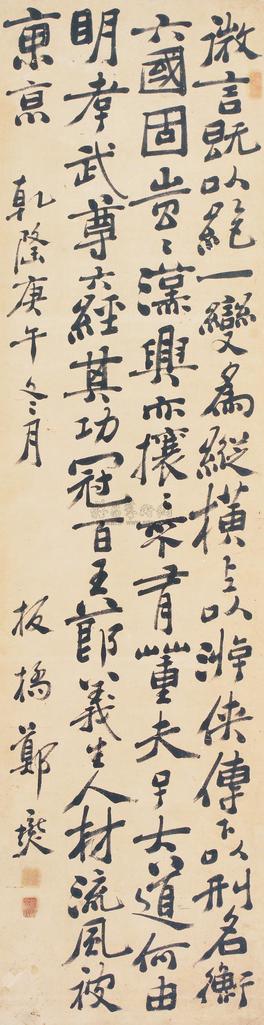 微言既以絕一變為縱橫上以游俠傳下以刑名衡
六國固蚩〻漢興亦攘〻不有董夫子大道何由
明孝武尊六經其功冠百王節義生人材流風被
東亰 乾隆庚午冬月 板橋鄭燮